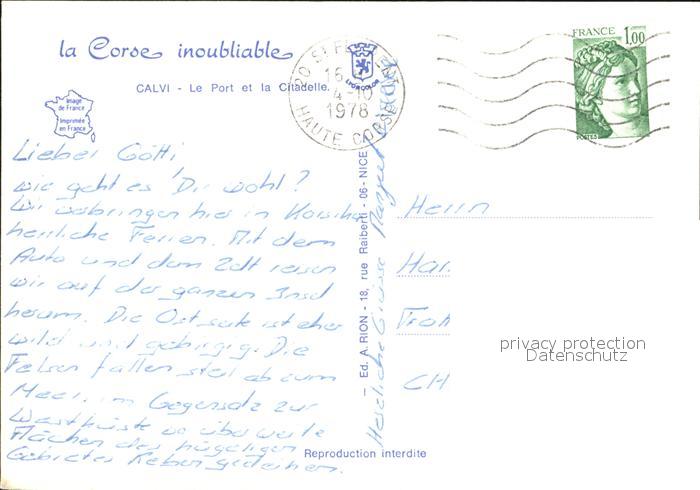 la Corse inoubliable
CALVI - Le Port et la Citadelle.
Image
de France
Imprimée
en France
LYONCOLOR
20 ST FLORENT
16
4-10
1978
HAUTE CORSE
FRANCE 1,00
POSTES
Lieber Götti
wie geht es Dir wohl?
Wir verbringen hier in Korsika
herrliche Ferien. Mit dem
Auto und dem Zelt reisen
wir auf der ganzen Insel
herum. Die Ostseite ist eher
wild und gebirgig. Die
Felsen fallen steil ab zum
Meer, im Gegensatz zur
Westküste wo über weite
Flächen des hügeligen
Gebietes Reben gedeihen.
Herzliche Grüsse Margrit
Ed. A. RION - 18, rue Raiberti - 06 - NICE
Herrn
Har.
CH
privacy protection
Datenschutz
Reproduction interdite